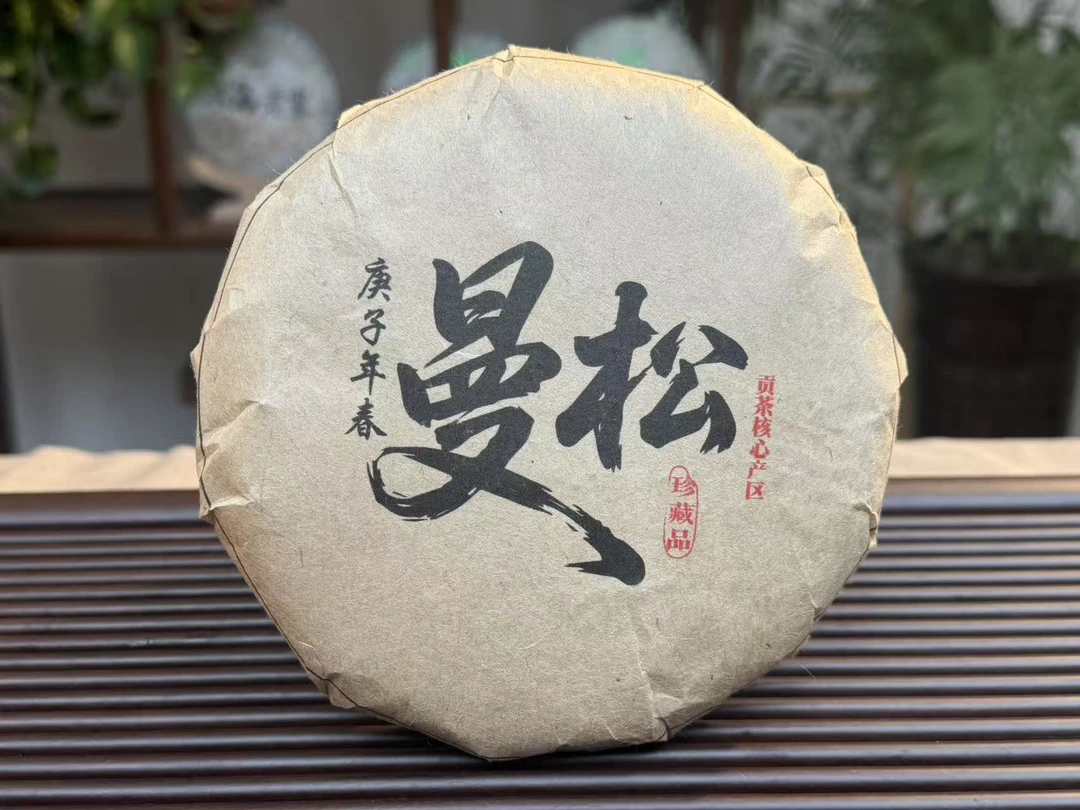 庚子年春
曼松
贡茶核心产区
珍藏品